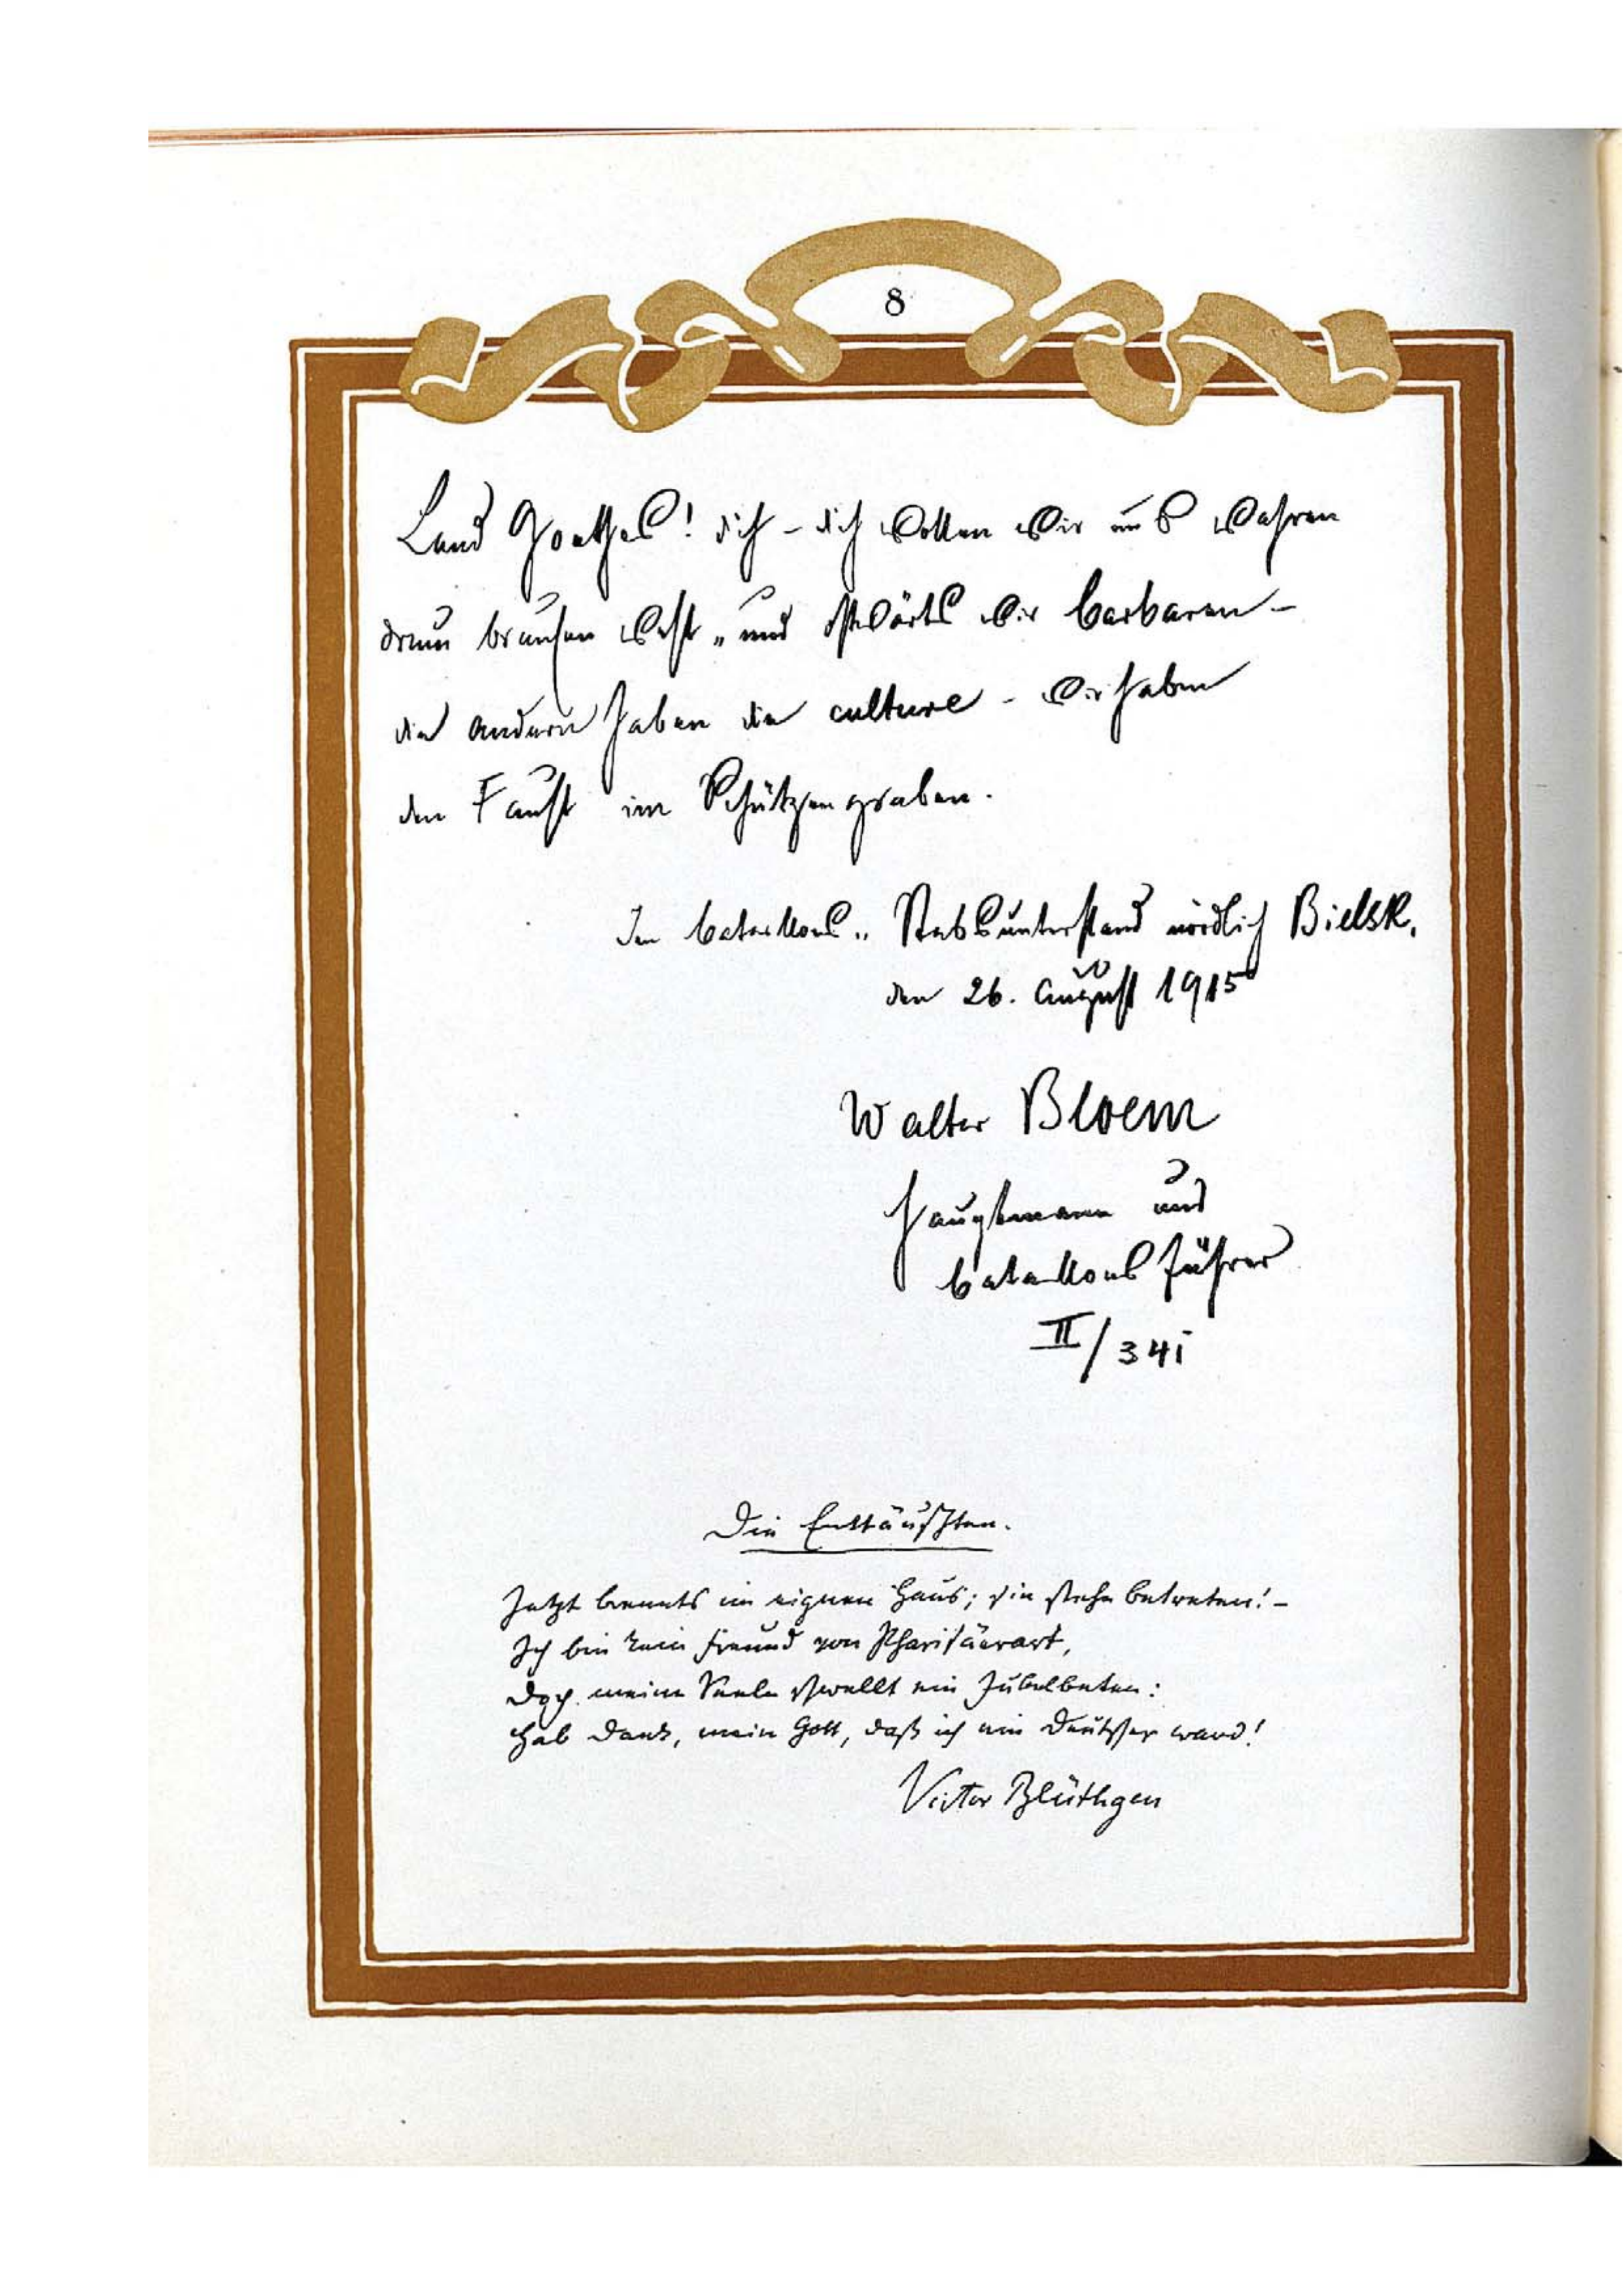 8
Land Goethes! dich – dich wollen wir uns wahren
drum brausen west- und ostwärts wir barbaren –
die andern haben die culture – wir haben
den Faust im Schützengraben.
Im bataillons- Stabsunterstand nördlich Bielsk,
den 26. august 1915
Walter Bloem
Hauptmann und
bataillonsführer
II/341
Die Enttäuschten.
Jetzt brennts im eignen Haus; sie stehn betreten! –
Ich bin kein Freund von Pharisäerart,
Doch meine Seele schwellt ein Jubelbeten:
Hab Dank, mein Gott, daß ich ein Deutscher ward!
Victor Blüthgen